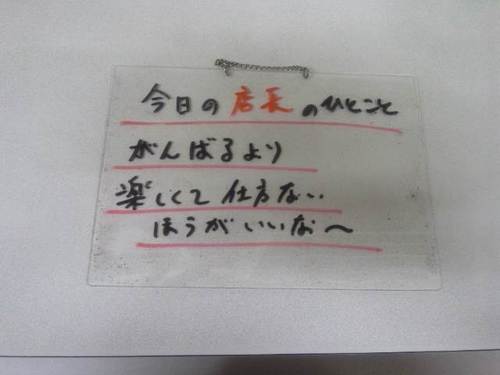 今日の店長のひとこと
がんばるより
楽しくて仕方ない
ほうがいいな〜